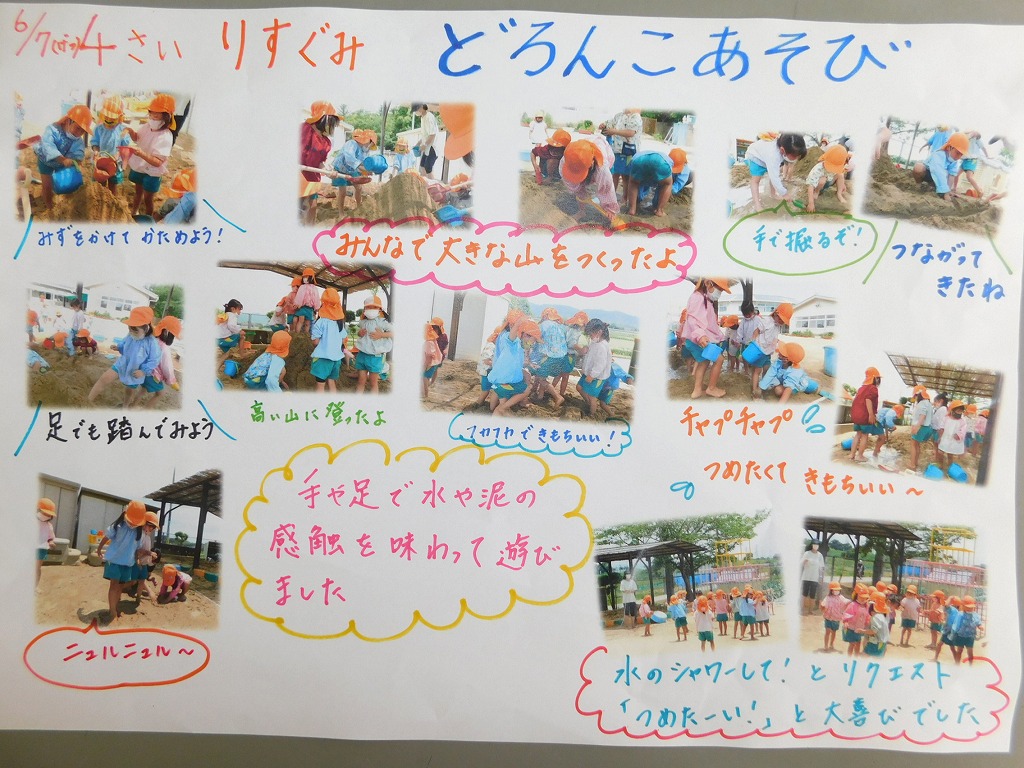 6/7(火) 4さい りすぐみ どろんこあそび
みずをかけて かためよう!
みんなで大きな山をつくったよ
手で掘るぞ!
つながって
きたね
足でも踏んでみよう
高い山に登ったよ
フカフカできもちいい!
チャプチャプ
つめたくて きもちいい~
手や足で水や泥の
感触を味わって遊び
ました
ニュルニュル~
水のシャワーして!とリクエスト
「つめたーい!」と大喜びでした